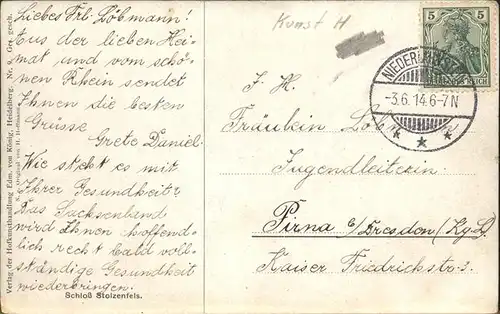 Liebes Frl. Löbmann!
Aus der lieben Hei-
mat und vom schö-
nen Rhein sendet
Ihnen die besten
Grüsse
Grete Daniel.
Wie steht es mit
Ihrer Gesundheit?
Das Sachsenland
wird Ihnen hoffend-
lich recht bald voll-
ständige Gesundheit
wiederbringen.
Schloß Stolzenfels.
Verlag der Hofkunsthandlung Edm. von König, Heidelberg. Nr. 9. Ges. gesch.
Original von H. Hoffmann
Kunst H
5 5
REICH
-3.6.14.6-7N
* * *
J. H.
Fräulein
Jugendleiterin
Pirna b/Dresden (Kg.
Kaiser Friedrichstr. 3.